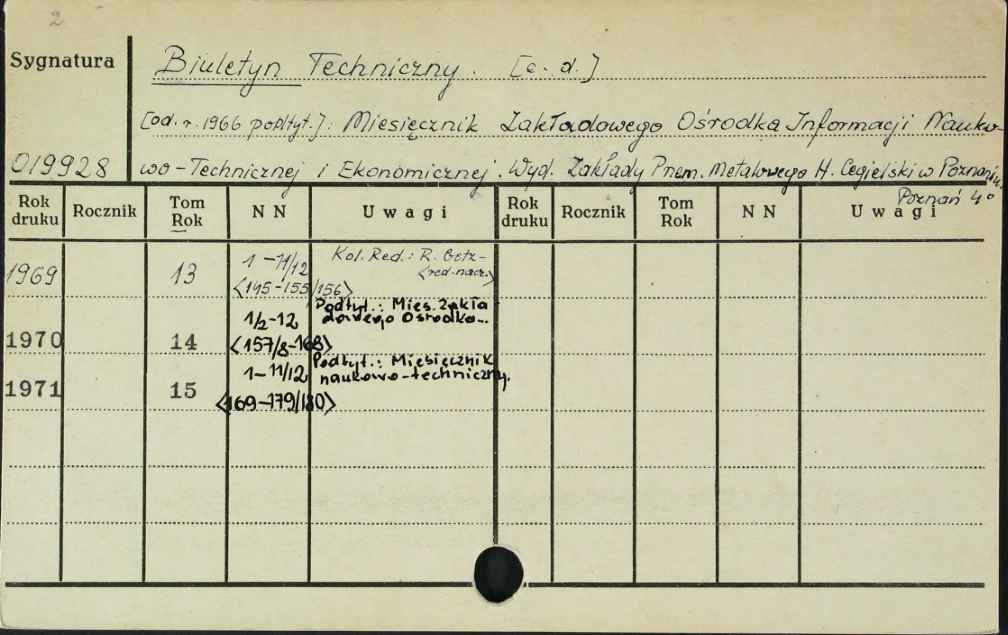 2
Sygnatura
Biuletyn Techniczny. [c. d.]
[od. r. 1966 podtyt.]: Miesięcznik Zakładowego Ośrodka Informacji Nauko
019928
wo-Technicznej i Ekonomicznej. Wyd. Zakłady Przem. Metalowego H. Cegielski w Poznaniu.
Poznań 4°
Rok druku Rocznik Tom Rok N N Uwagi Rok druku Rocznik Tom Rok N N Uwagi
1969 13 1-11/12 Kol. Red.: R.
<145-155/156> <red. nacz.>
1970 14 1/2-12 Podtyt.: Mies. Zakła
dowego Ośrodka..
<157/8-168>
1971 15 1-11/12 Podtyt.: Miesięcznik
naukowo-techniczny.
<169-179/180>